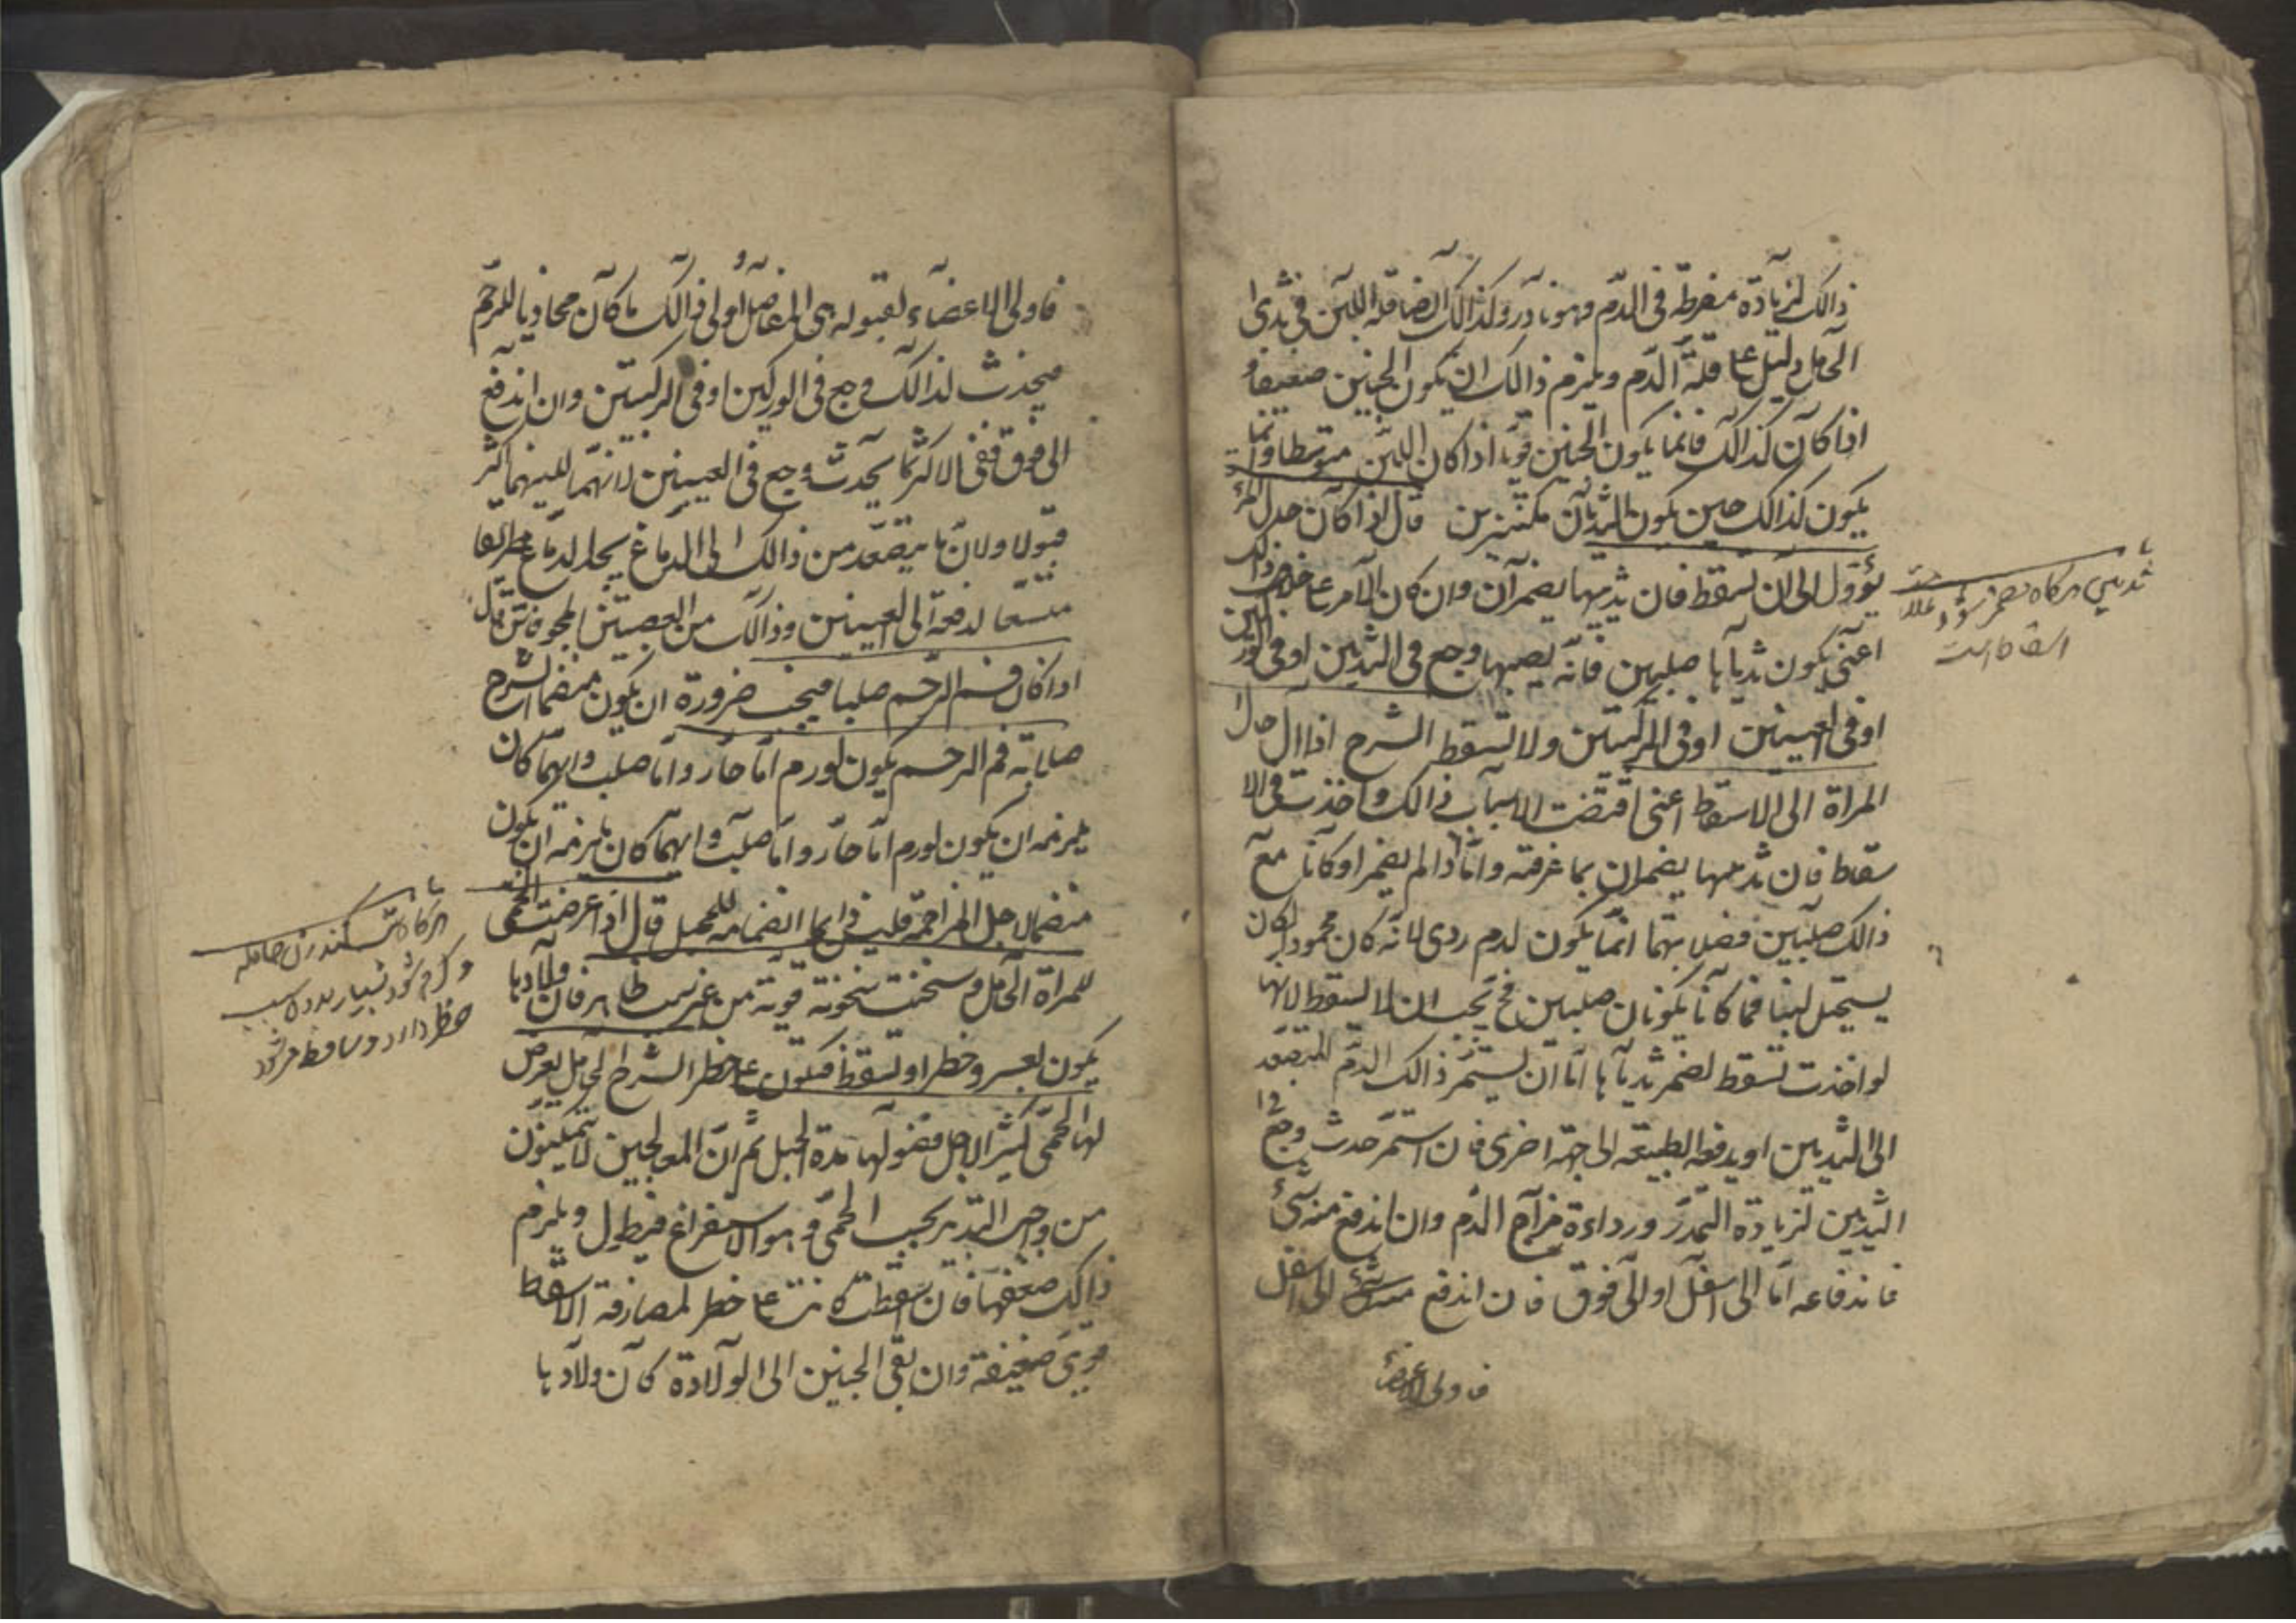 ذالك لزيادة مفرطة فى الدم وهو نادر وكذالك ايضا قلة اللبن فى ثدى
الحامل دليل على قلة الدم ويلزم ذالك ان يكون الجنين ضعيفا و
اذا كان كذالك فانما يكون الجنين قويا اذا كان اللبن متوسطا وانما
يكون كذالك حين يكون الثديان مكتنزين قال اذا كان حال المراة
يؤول الى ان تسقط فان ثدييها يضمران وان كان الامر على خلاف ذالك
اعنى يكون ثدياها صلبين فانه يصيبها وجع فى الثديين او فى الوركين
او فى العينين او فى الركبتين ولا تسقط الشرح اذا ال حال
المراة الى الاسقاط اعنى اقتضت الاسباب ذالك واخذت فى الا
سقاط فان ثدييها يضمران بما عرفته واما اذا لم يضمرا وكانا مع
ذالك صلبين فصلابتهما انما يكون لدم ردى لانه كان محمودا لكان
يستحيل لبنا فما كانا يكونان صلبين فح يجب ان لا تسقط لانها
لو اخذت تسقط لضمر ثدياها اما ان يستمر ذالك الدم المتصعد
الى الثديين او يدفعه الطبيعة الى جهة اخرى فان استمر حدث وجع فى
الثديين لزيادة التمدد ورداءة مزاج الدم وان اندفع منه شئ
فاندفاعه اما الى اسفل او الى فوق فان اندفع منه شئ الى اسفل
فاولى الاعضاء
ثديين هرگاه مضمر شود
اسقاط است
فاولى الاعضاء لقبوله هى المفاصل واولى ذالك ما كان محاذيا للرحم
فيحدث لذالك وجع فى الوركين او فى الركبتين وان اندفع
الى فوق ففى الاكثر انما يحدث وجع فى العينين لانهما للينهما اكثر
قبولا ولان ما يتصعد من ذالك الى الدماغ يجد الدماغ طريقا
متسعا لدفعه الى العينين وذالك من العصبتين المجوفتين قال
اذا كان فم الرحم صلبا فيجب ضرورة ان يكون منضما الشرح
صلابة فم الرحم يكون لورم اما حار واما صلب وايهما كان
يلزمه ان يكون لورم اما حار واما صلب وايهما كان يلزمه ان يكون
منضما لاجل المزاحمة فليس دايما انضمامه للحبل قال اذا عرضت الحمى
للمراة الحامل وسخنت سخونة قوية من غير سبب ظاهر فان ولادها
يكون بعسر وخطر او تسقط فتكون على خطر الشرح الحامل يعرض
لها الحمى كثيرا لاجل فضولها مدة الحبل ثم ان المعالجين لا يتمكنون
من واجب التدبير بحسب الحمى وهو الاستفراغ فيطول ويلزم
ذالك ضعفها فان اسقطت كانت على خطر لمصادفة الاسقاط
قوى ضعيفة وان بقى الجنين الى الولادة كان ولادها
هرگاه تب كند زن حامله
و گرم شود بسيار بدون سبب
خطر دارد و ساقط مى شود